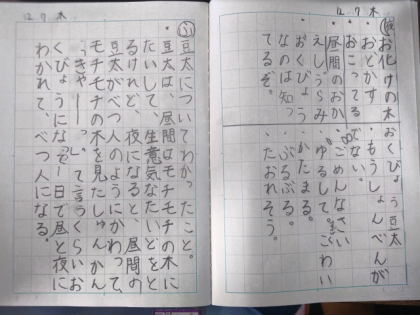 12 7 木
お化けの木
・おどかす
・おこってる
・昼間のおかえし、うらみ
・おくびょうなのは知ってるぞ。
おくびょう豆太
・もうしょんべんがでない。
・ごめんなさい
ゆるして。こわい
・かたまる。
・ぶるぶる。
・たおれそう。
12 7 木
ふ
豆太についてわかったこと。
・豆太は、昼間はモチモチの木に
たいして、生意気なたいどをと
るけれど、夜になると、昼間の
豆太がべつ人のようにかわって
モチモチの木を見たしゅんかん
「きゃーー」って言うくらいお
くびょうになる。一日で昼と夜に
わかれて、べつ人になる。